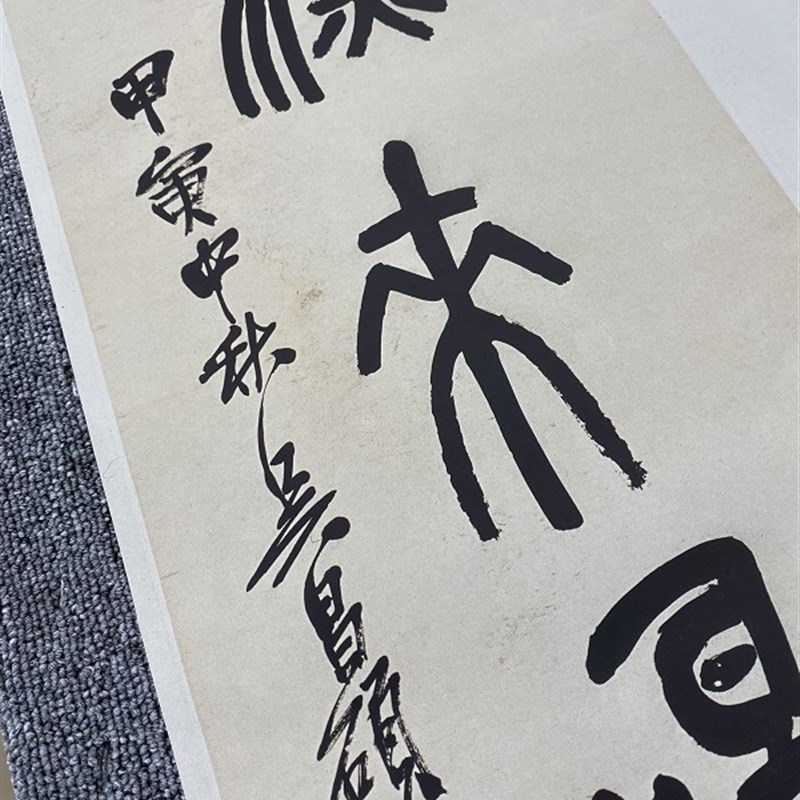 來
甲寅中秋吳昌碩